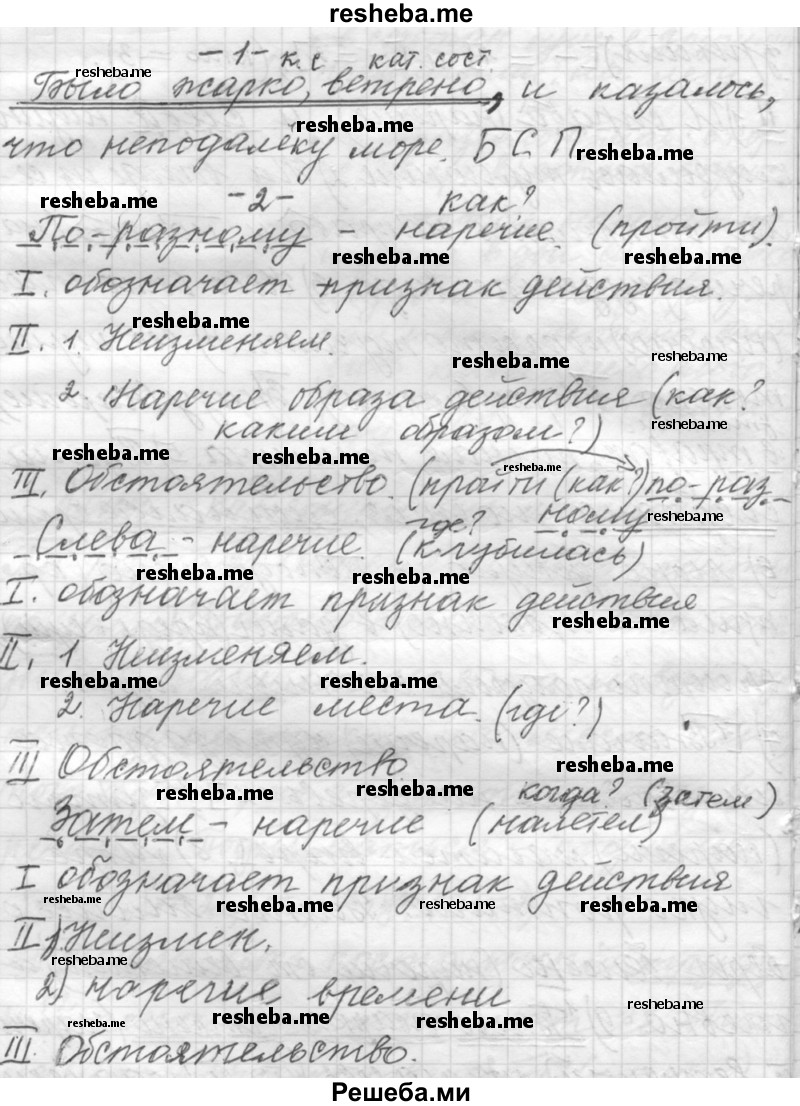 resheba.me
-1- к.с кат. сост.
Было жарко, ветрено, и казалось,
что неподалёку море. БСП
-2- как?
По-разному - наречие. (пройти).
I. обозначает признак действия.
II. 1. Неизменяем.
2. Наречие образа действия (как?
каким образом?)
III. Обстоятельство. (пройти (как?) по-раз-
ному
где?
Слева - наречие. (клубилась)
I. обозначает признак действия
II. 1 Неизменяем.
2. Наречие места. (где?)
III Обстоятельство
когда? (затем)
Затем - наречие (налетел)
I обозначает признак действия
II 1) Неизмен.
2) наречие времени
III. Обстоятельство.
Решеба.ми